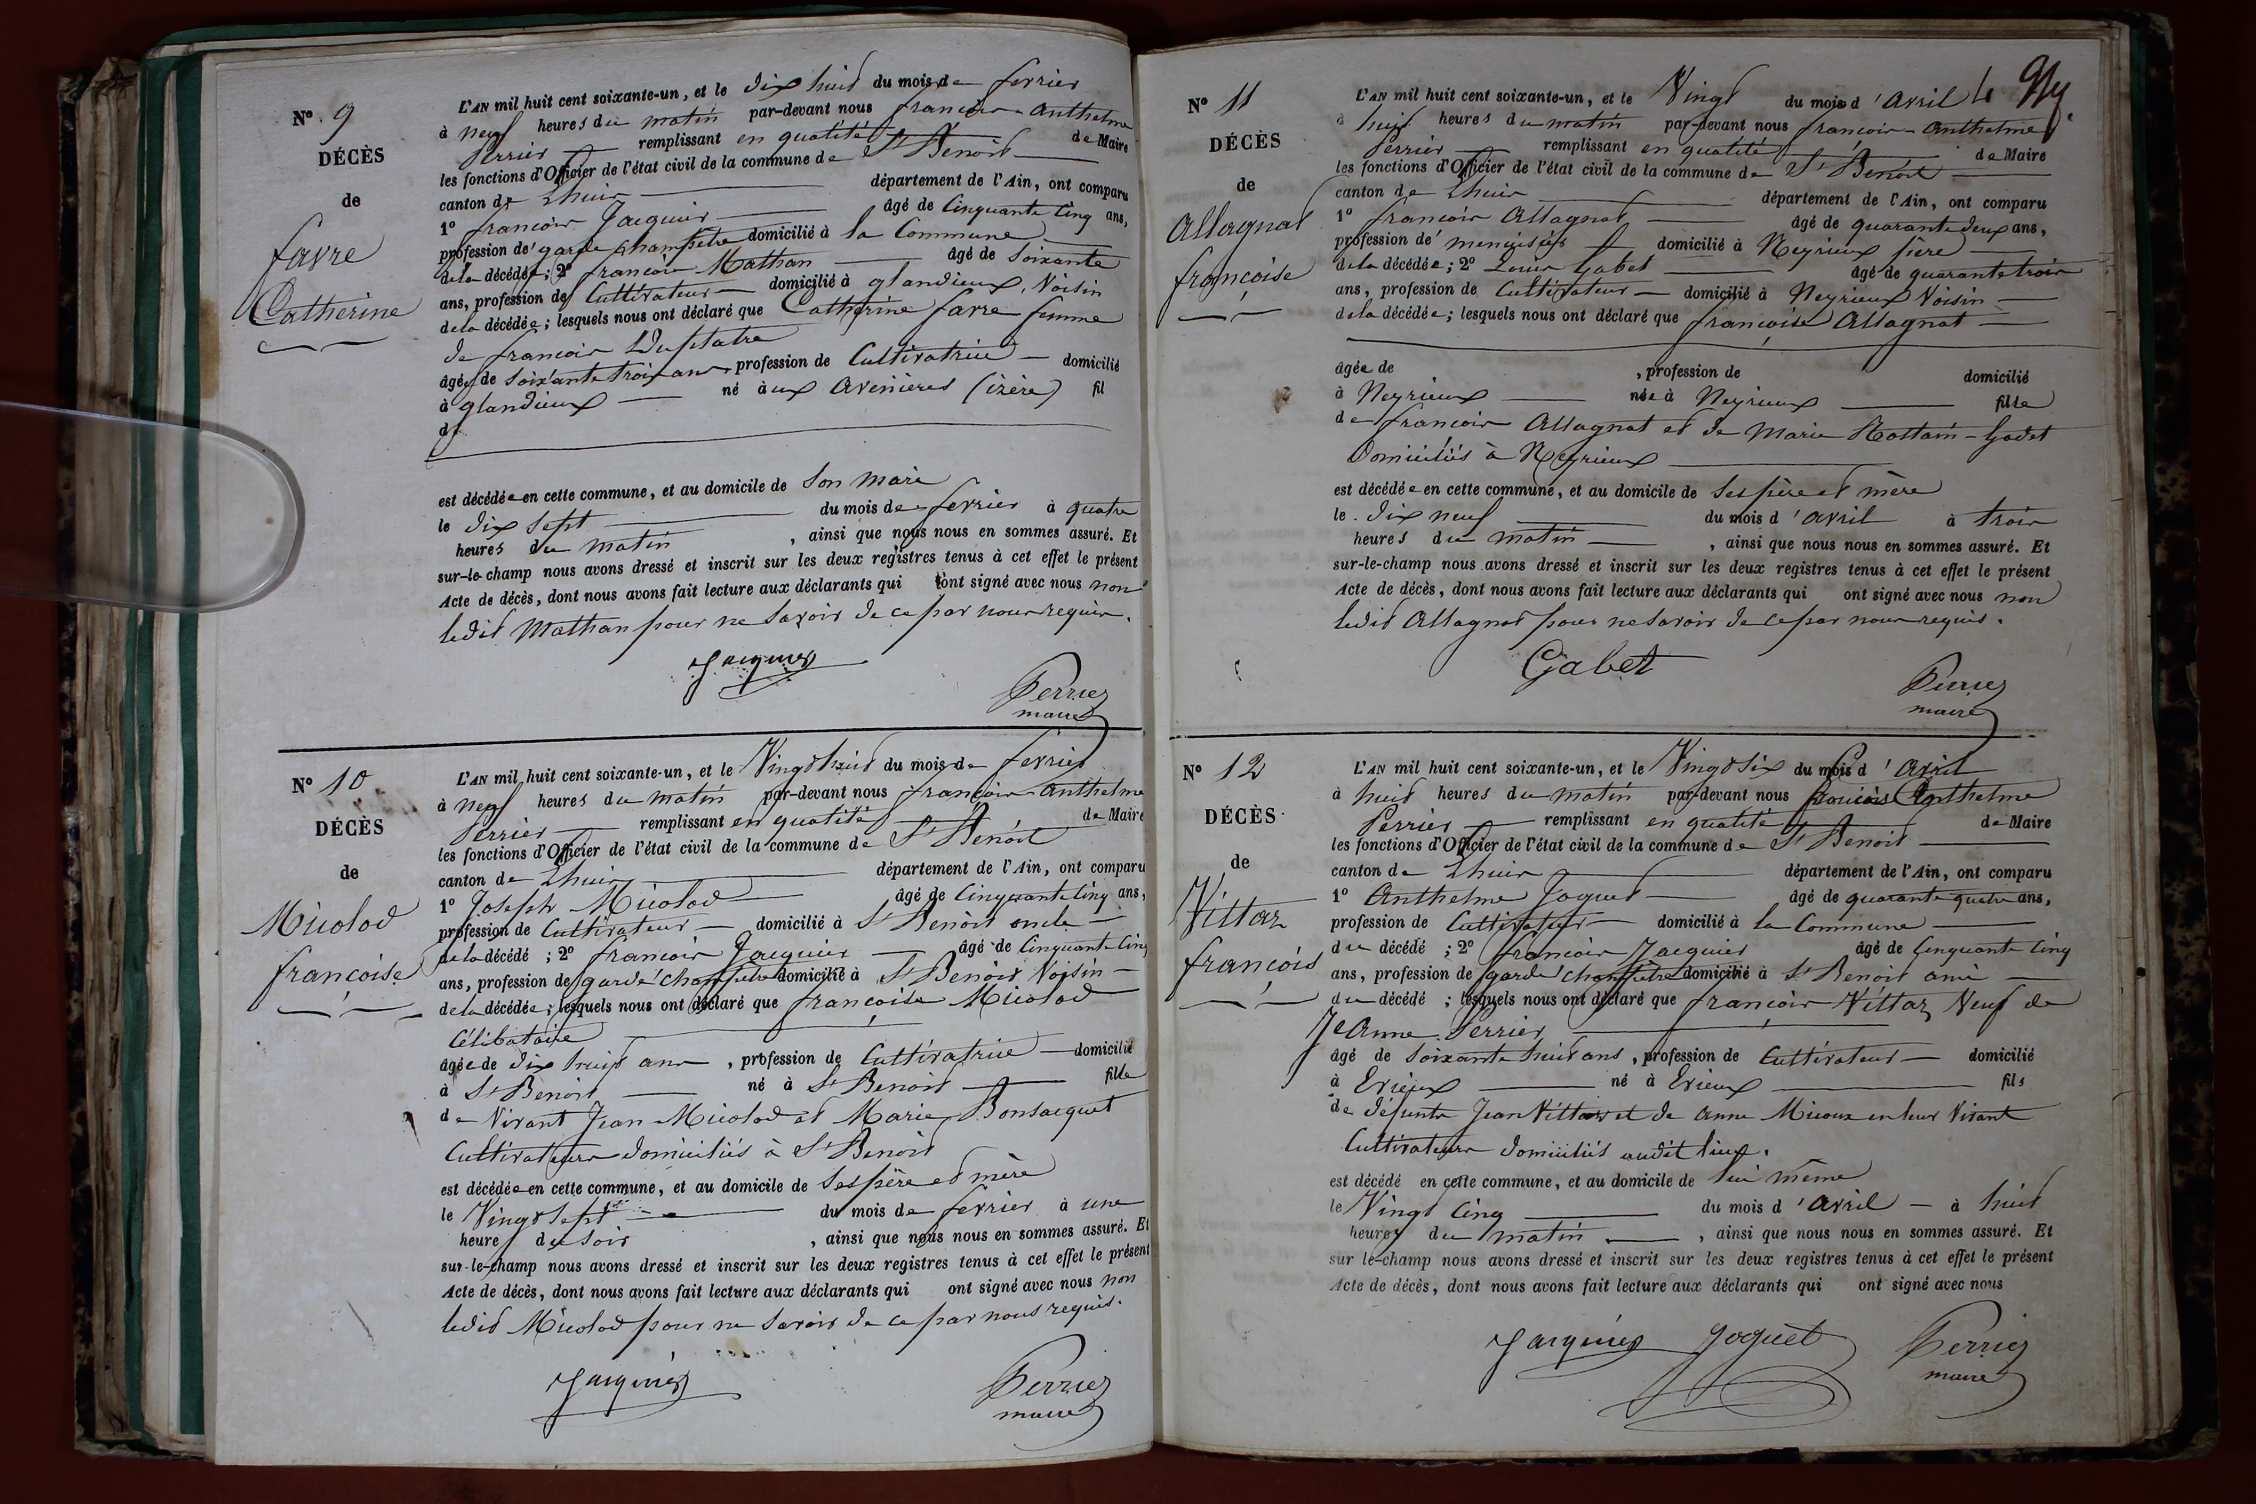 N° 9
DÉCÈS
de
favre
Catherine
L'AN mil huit cent soixante-un, et le dix huit du mois de fevrier
à neuf heures du matin par-devant nous françois Anthelme
Perrier remplissant en qualité de Maire
les fonctions d'Officier de l'état civil de la commune de St Benoit
canton de Lhuis département de l'Ain, ont comparu
1° françois Jacquier âgé de Cinquante Cinq ans,
profession de garde champetre domicilié à la Commune
de la décédée; 2° françois Mathan âgé de Soixante
ans, profession de Cultivateur domicilié à glandieux, Voisin
de la décédée; lesquels nous ont déclaré que Catherine favre femme
de françois Duplatre
âgée de Soixante trois ans, profession de Cultivatrice domicilié
à glandieux né à aux avenieres (izère) fil
de
est décédée en cette commune, et au domicile de Son mari
le dix Sept du mois de fevrier à quatre
heures du matin, ainsi que nous nous en sommes assuré. Et
sur-le-champ nous avons dressé et inscrit sur les deux registres tenus à cet effet le présent
Acte de décès, dont nous avons fait lecture aux déclarants qui ont signé avec nous non
ledit Mathan pour ne Savoir de ce par nous requis.
Jacquier
Perrier
maire
N° 10
DÉCÈS
de
Micolod
françoise
L'AN mil huit cent soixante-un, et le Vingt huit du mois de fevrier
à neuf heures du matin par-devant nous françois Anthelme
Perrier remplissant en qualité de Maire
les fonctions d'Officier de l'état civil de la commune de St Benoit
canton de Lhuis département de l'Ain, ont comparu
1° Joseph Micolod âgé de Cinquante Cinq ans,
profession de Cultivateur domicilié à St Benoit oncle
de la décédé; 2° françois Jacquier âgé de Cinquante Cinq
ans, profession de garde champetre domicilié à St Benoit Voisin
de la décédée; lesquels nous ont déclaré que françoise Micolod
Célibataire
âgée de dix huit ans, profession de Cultivatrice domicilié
à St Benoit né à St Benoit fille
de Vivant Jean Micolod et Marie Bonsacquet
Cultivateurs domiciliés à St Benoit
est décédée en cette commune, et au domicile de Ses père et mère
le Vingt Sept du mois de fevrier à une
heure du Soir, ainsi que nous nous en sommes assuré. Et
sur-le-champ nous avons dressé et inscrit sur les deux registres tenus à cet effet le présent
Acte de décès, dont nous avons fait lecture aux déclarants qui ont signé avec nous non
ledit Micolod pour ne Savoir de ce par nous requis.
Jacquier
Perrier
maire
N° 11
DÉCÈS
de
Allagnat
françoise
L'AN mil huit cent soixante-un, et le Vingt du mois d'avril
à huit heures du matin par-devant nous françois Anthelme
Perrier remplissant en qualité de Maire
les fonctions d'Officier de l'état civil de la commune de St Benoit
canton de Lhuis département de l'Ain, ont comparu
1° françois Allagnat âgé de quarante deux ans,
profession de menuisier domicilié à Neyrieux père
de la décédée; 2° Louis Gabet âgé de quarante trois
ans, profession de Cultivateur domicilié à Neyrieux Voisin
de la décédée; lesquels nous ont déclaré que françoise Allagnat
âgée de, profession de domicilié
à Neyrieux née à Neyrieux fille
de françois Allagnat et de Marie Rostain-Godet
Domiciliés à Neyrieux
est décédée en cette commune, et au domicile de Ses père et mère
le dix neuf du mois d'avril à trois
heures du matin, ainsi que nous nous en sommes assuré. Et
sur-le-champ nous avons dressé et inscrit sur les deux registres tenus à cet effet le présent
Acte de décès, dont nous avons fait lecture aux déclarants qui ont signé avec nous non
ledit Allagnat pour ne Savoir de ce par nous requis.
Gabet
Perrier
maire
N° 12
DÉCÈS
de
Vittaz
françois
L'AN mil huit cent soixante-un, et le Vingt Six du mois d'avril
à huit heures du matin par-devant nous françois Anthelme
Perrier remplissant en qualité de Maire
les fonctions d'Officier de l'état civil de la commune de St Benoit
canton de Lhuis département de l'Ain, ont comparu
1° Anthelme Joguet âgé de quarante quatre ans,
profession de Cultivateur domicilié à la Commune
du décédé; 2° françois Jacquier âgé de Cinquante Cinq
ans, profession de garde champêtre domicilié à St Benoit ami
du décédé; lesquels nous ont déclaré que françois Vittaz Veuf de
Jeanne Perrier
âgé de Soixante huit ans, profession de Cultivateur domicilié
à Evieux né à Evieux fils
de défunts Jean Vittaz et de anne Micoux en leur Vivant
Cultivateurs domiciliés audit lieux.
est décédé en cette commune, et au domicile de lui même
le Vingt Cinq du mois d'avril à huit
heures du matin, ainsi que nous nous en sommes assuré. Et
sur-le-champ nous avons dressé et inscrit sur les deux registres tenus à cet effet le présent
Acte de décès, dont nous avons fait lecture aux déclarants qui ont signé avec nous
Jacquier Joguet Perrier
maire